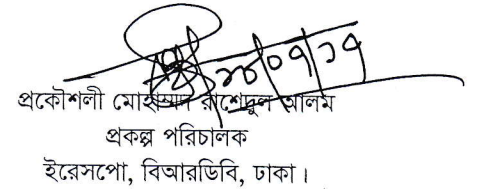 ১৮/০৭/১৭
প্রকৌশলী মোহাম্মদ রাশেদুল আলম
প্রকল্প পরিচালক
ইরেসপো, বিআরডিবি, ঢাকা।